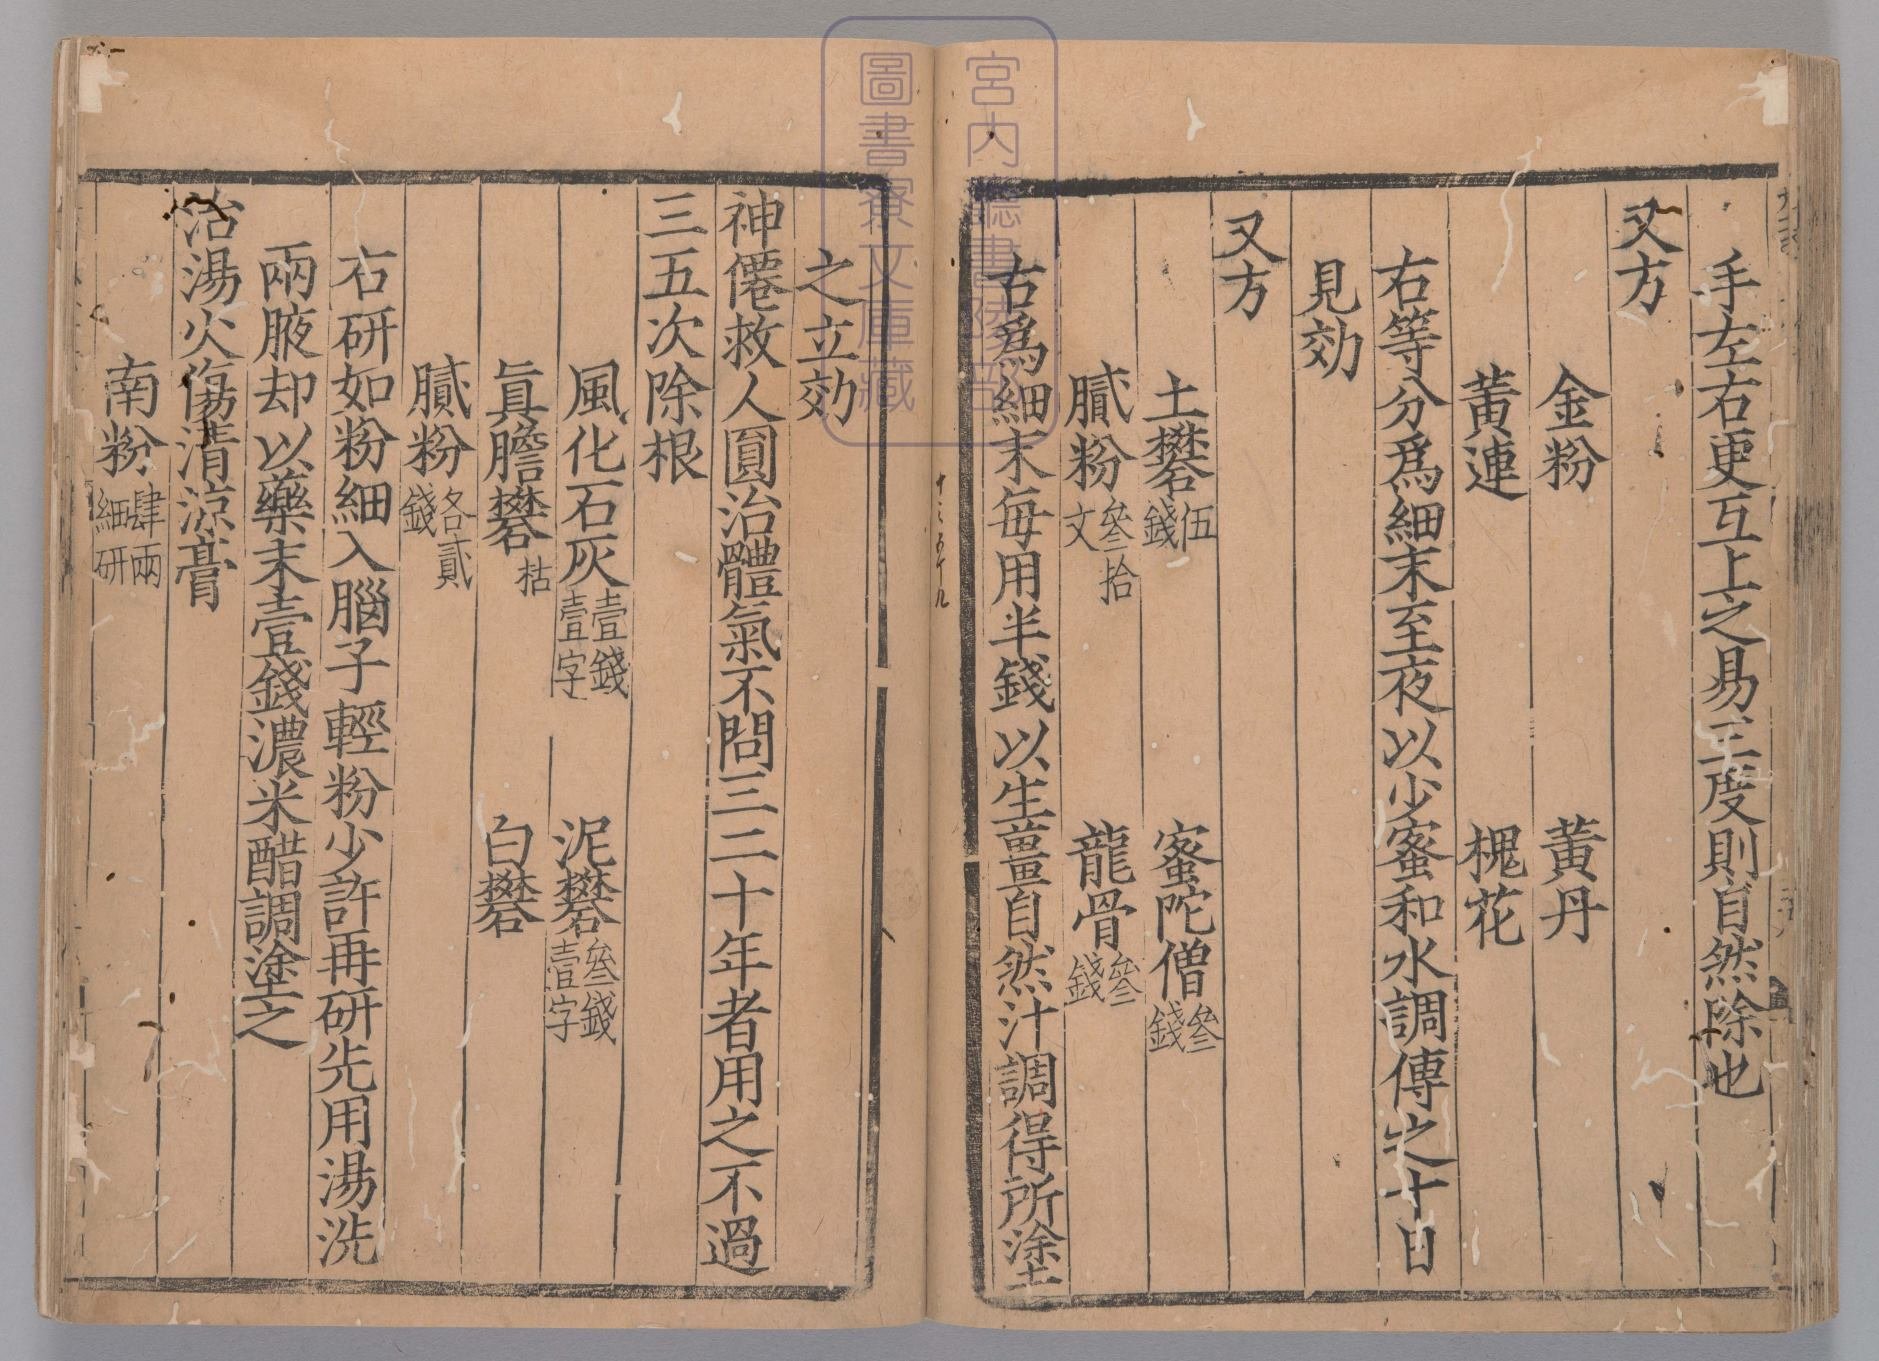 手左右更互上之易三度則自然除也
又方
金粉 黃丹
黃連 槐花
右等分爲細末至夜以少蜜和水調傅之十日
見効
又方
土礬伍錢 蜜陀僧叄錢
膩粉叄拾文 龍骨叄錢
右爲細末每用半錢以生薑自然汁調得所塗
之立効
神僊救人圓治體氣不問三二十年者用之不過
三五次除根
風化石灰壹錢壹字 泥礬叄錢壹字
眞膽礬枯 白礬
膩粉各貳錢
右研如粉細入腦子輕粉少許再研先用湯洗
兩腋却以藥末壹錢濃米醋調塗之
治湯火傷清涼膏
南粉肆兩細研
宮内廳書陵部
圖書寮文庫藏